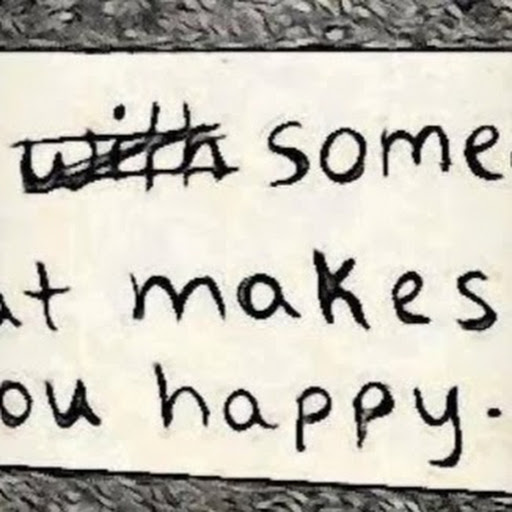 with some
at makes
ou happy.